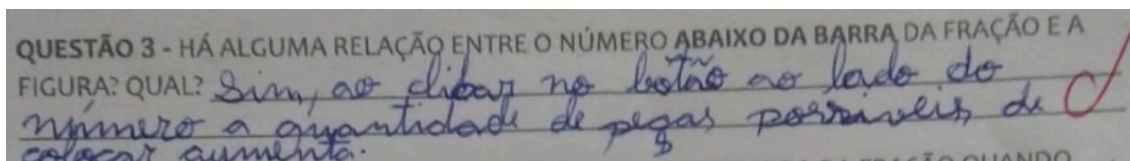 QUESTÃO 3 - HÁ ALGUMA RELAÇÃO ENTRE O NÚMERO ABAIXO DA BARRA DA FRAÇÃO E A
FIGURA? QUAL? Sim, ao clicar no botão ao lado do
número a quantidade de peças possiveis de
colocar aumenta.
QUANDO